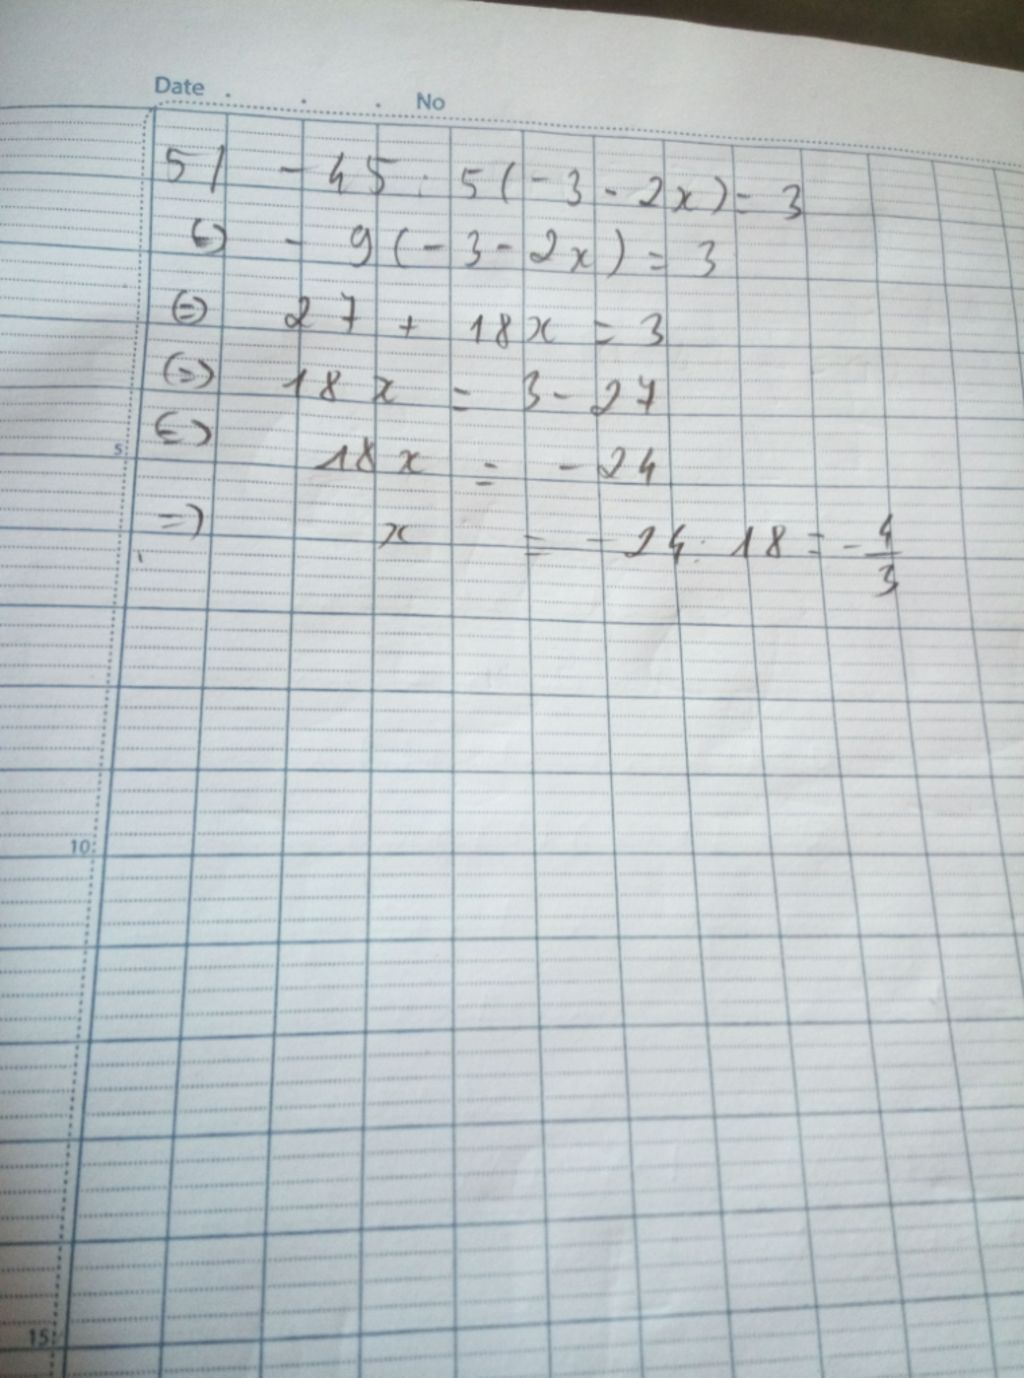 Date . . . No
5/ - 45 : 5 (-3 - 2x) = 3
<=> - 9 (-3 - 2x) = 3
<=> 27 + 18x = 3
<=> 18x = 3 - 27
<=> 18x = - 24
=> x = - 24 : 18 = - 4/3
5
10
15